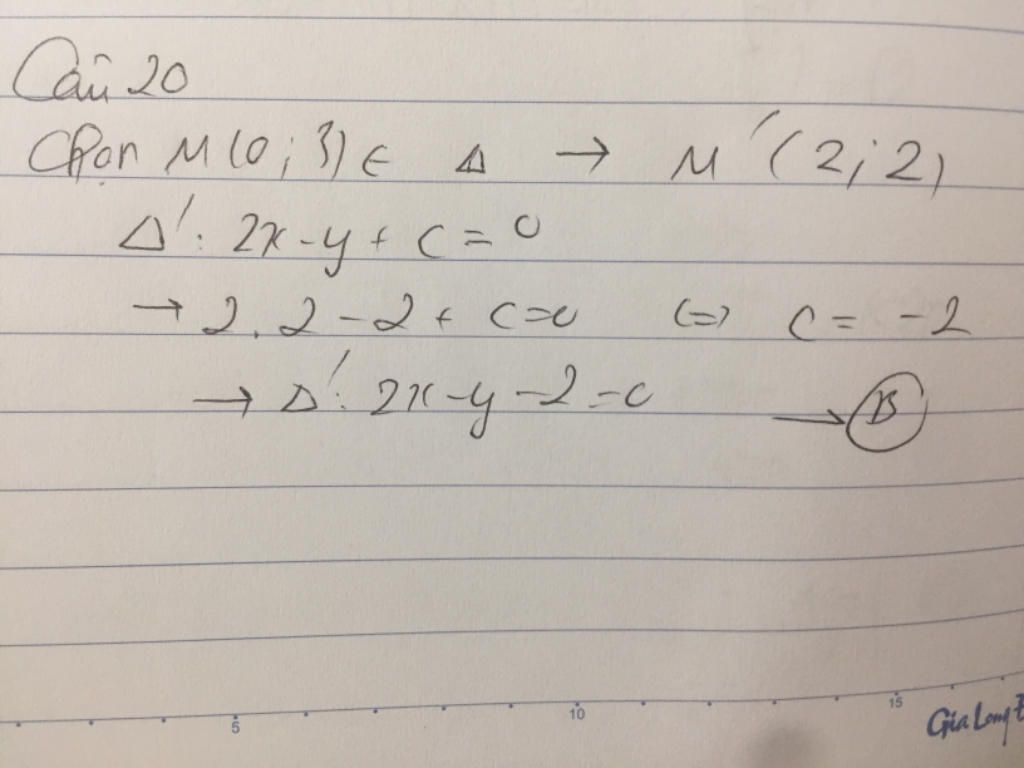 Câu 20
Chọn M(0; 3) ∈ Δ → M'(2; 2)
Δ': 2x - y + c = 0
→ 2.2 - 2 + c = 0 <=> c = -2
→ Δ': 2x - y - 2 = 0 → B
5 10 15
Gia Long